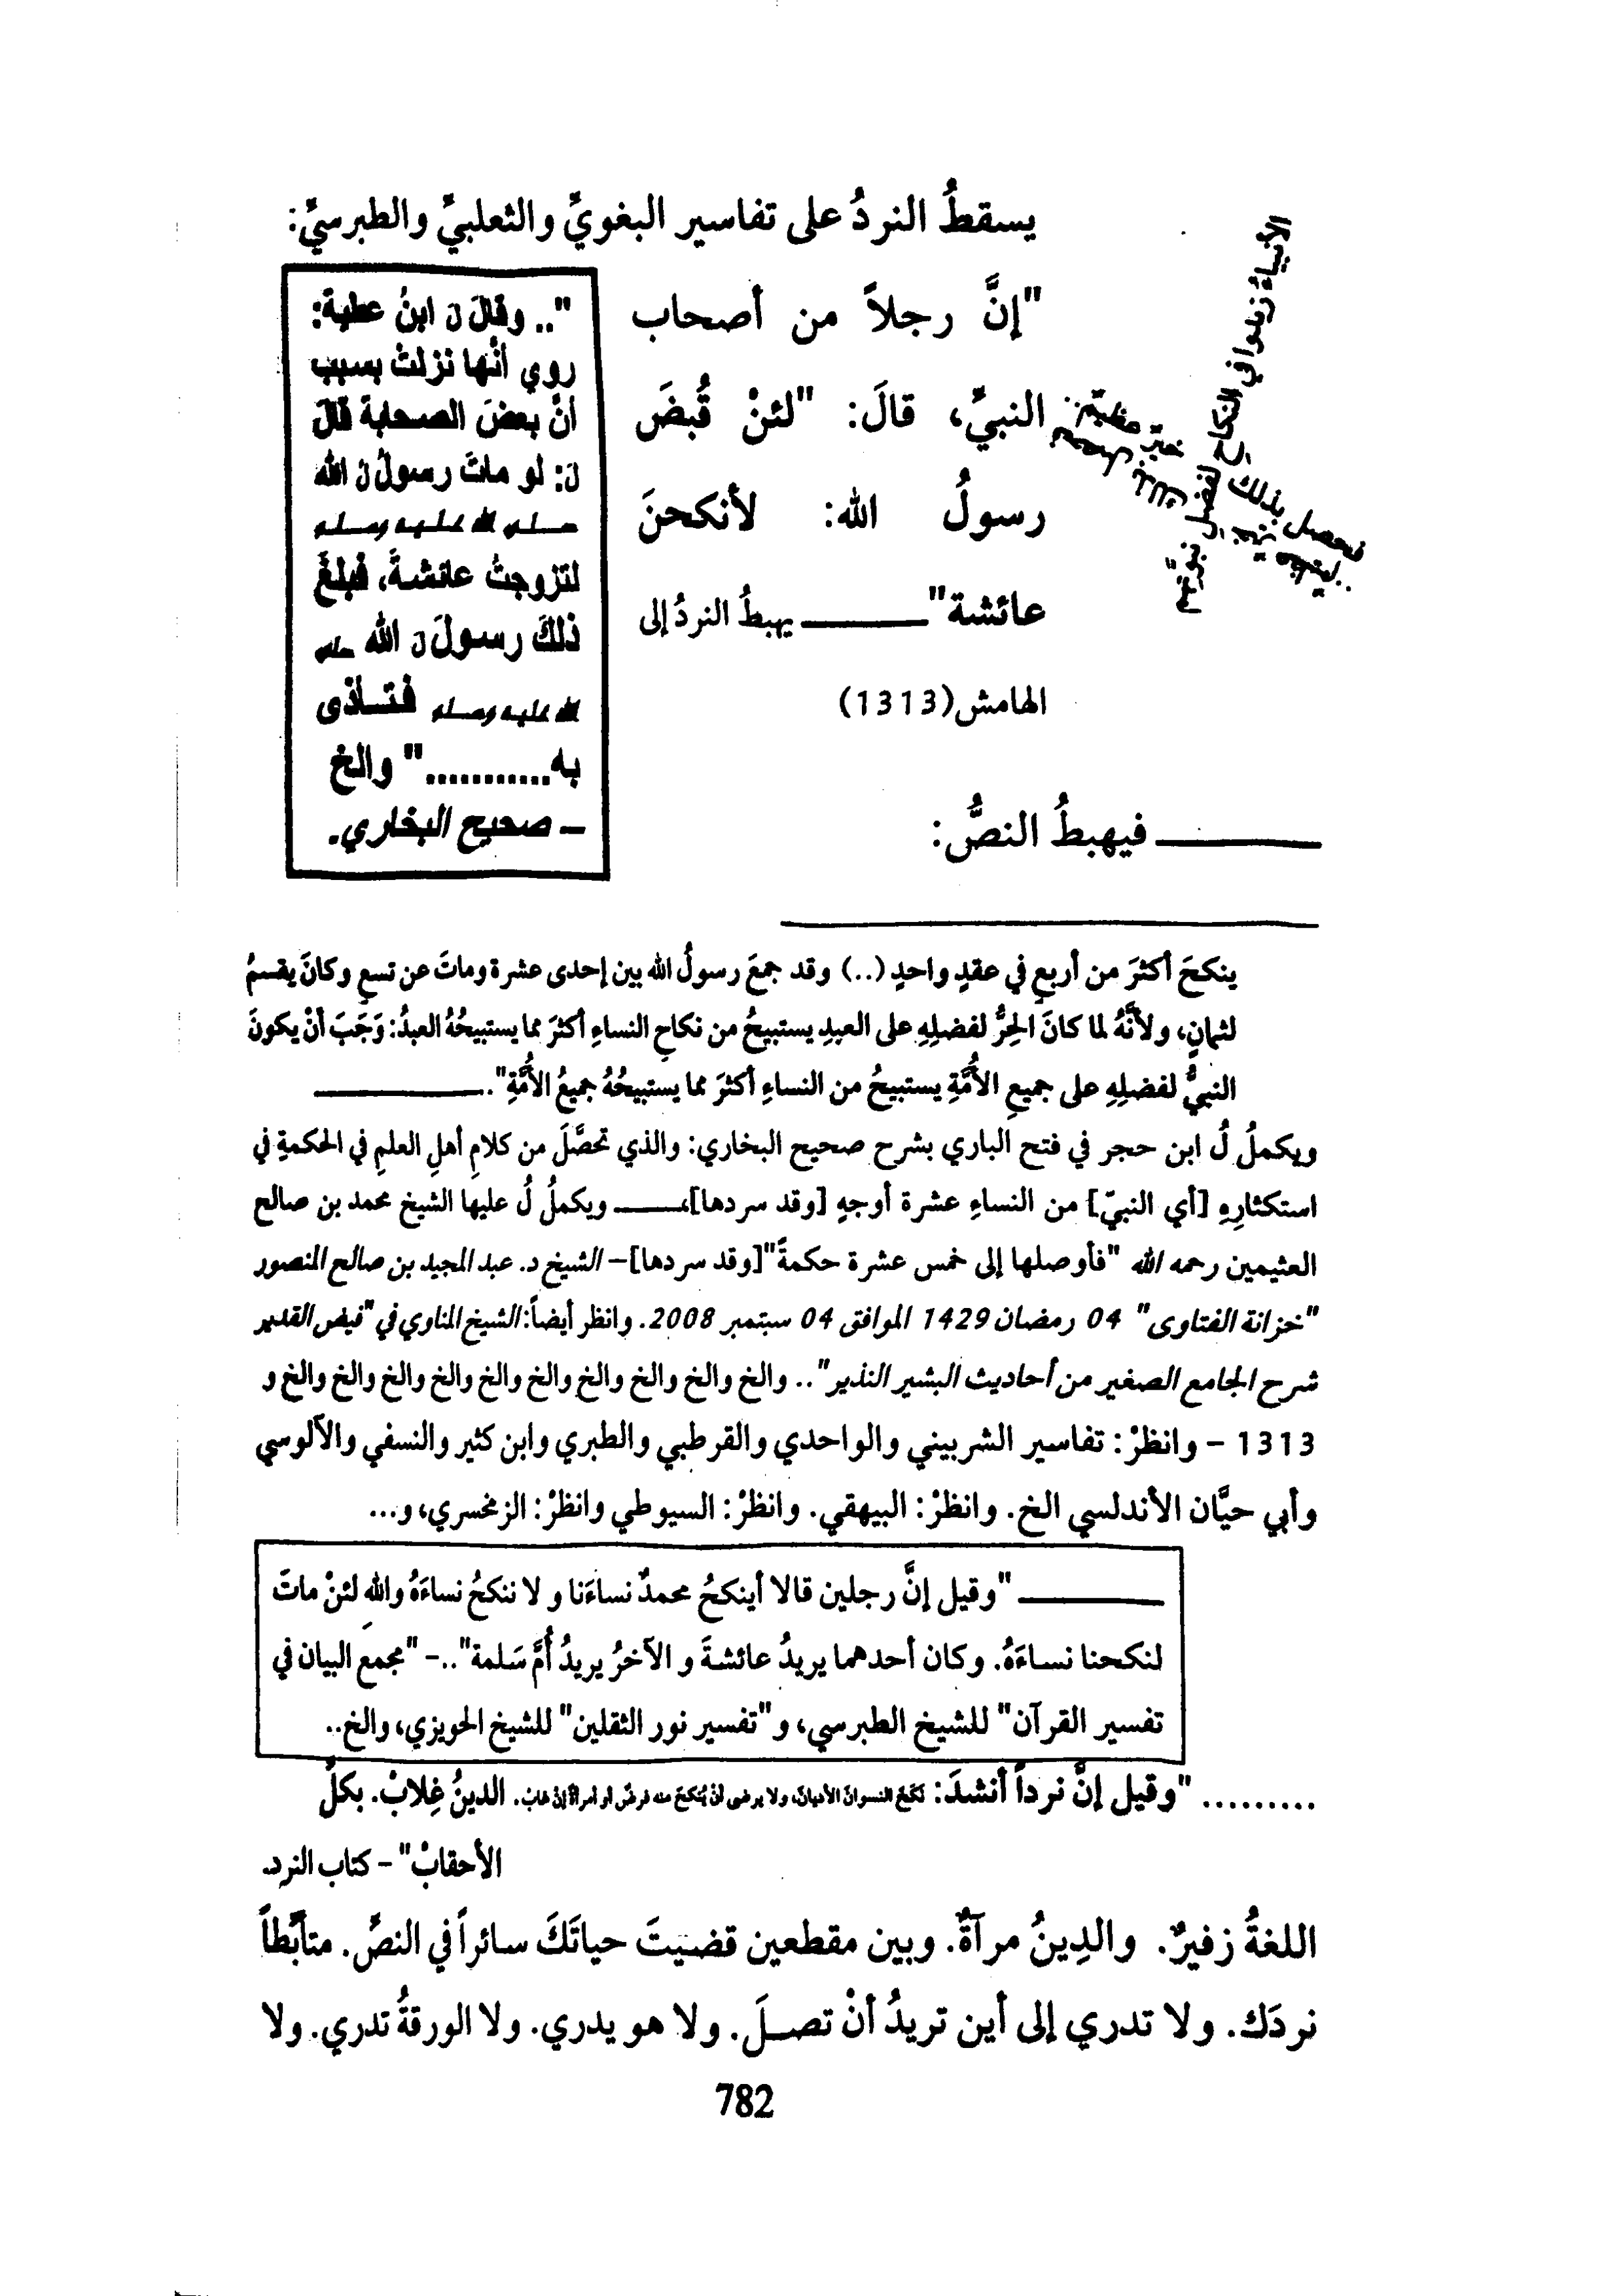 يسقطُ النردُ على تفاسير البغويِّ والثعلبيِّ والطبرسيِّ:
"إنَّ رجلاً من أصحاب
النبيِّ، قالَ: "لئنْ قُبضَ
رسولُ الله: لأنكحنَ
عائشة" ــــــــ يهبطُ النردُ إلى
الهامش(1313)
ــــــــ فيهبطُ النصُّ:
".. وقالَ ن ابنُ عطية:
روي أنَّها نزلتْ بسبب
أنَّ بعضَ الصحابة قالَ
نَ: لو ماتَ رسولُ ن الله
صلى الله عليه وسلم
لتزوجتُ عائشةَ، فبلغَ
ذلكَ رسولَ ن الله صلى
الله عليه وسلم فتأذى
به..........." والخ
– صحيح البخاري.
الأنبياءُ زيدوا في النكاح لفضل نبوّتهم
فحصل بذلك
ينكحَ أكثرَ من أربعٍ في عقدٍ واحدٍ (..) وقد جمعَ رسولُ الله بين إحدى عشرة وماتَ عن تسعٍ وكانَ يقسمُ
لثمانٍ، ولأنَّهُ لما كانَ الحِرُّ لفضلِهِ على العبدِ يستبيحُ من نكاحِ النساءِ أكثرَ مما يستبيحُهُ العبدُ: وَجَبَ أنْ يكونَ
النبيُّ لفضلِهِ على جميعِ الأُمَّةِ يستبيحُ من النساءِ أكثرَ مما يستبيحُهُ جميعُ الأُمَّةِ". ــــــــ
ويكملُ لُ ابن حجر في فتح الباري بشرح صحيح البخاري: والذي تحصَّلَ من كلامِ أهلِ العلمِ في الحكمةِ في
استكثارِهِ [أي النبيّ] من النساءِ عشرة أوجهٍ [وقد سردها]، ــــــــ ويكملُ لُ عليها الشيخ محمد بن صالح
العثيمين رحمه الله "فأوصلها إلى خمس عشرة حكمةً"[وقد سردها]– الشيخ د. عبد المجيد بن صالح المنصور
"خزانة الفتاوى" 04 رمضان 1429 الموافق 04 سبتمبر 2008. وانظر أيضاً: الشيخ المناوي في "فيض القدير
شرح الجامع الصغير من أحاديث البشير النذير".. والخ والخ والخ والخ والخ والخ والخ والخ والخ والخ و
1313 – وانظرْ: تفاسير الشربيني والواحدي والقرطبي والطبري وابن كثير والنسفي والآلوسي
وأبي حيَّان الأندلسي الخ. وانظرْ: البيهقي. وانظرْ: السيوطي وانظرْ: الزمخسري، و...
ــــــــ "وقيل إنَّ رجلين قالا أينكحُ محمدٌ نساءَنا و لا ننكحُ نساءَهُ واللهِ لئنْ ماتَ
لنكحنا نساءَهُ. وكان أحدهما يريدُ عائشةَ و الآخرُ يريدُ أُمَّ سَلمة"..– "مجمع البيان في
تفسير القرآن" للشيخ الطبرسي، و"تفسير نور الثقلين" للشيخ الحويزي، والخ..
......... "وقيل إنَّ نرداً أنشدَ: نكحَ النسوانَ الأديانَ، ولا يرضى أنْ يُنكحَ منه فرضٌ أو امرأةٌ إنْ غابَ. الدينُ غِلابْ. بكلِّ
الأحقابْ" – كتاب النرد.
اللغةُ زفيرٌ. والدِينُ مرآةٌ. وبين مقطعين قضيتَ حياتَكَ سائراً في النصِّ. متأبِّطاً
نردَك. ولا تدري إلى أين تريدُ أنْ تصلَ. ولا هو يدري. ولا الورقةُ تدري. ولا
782